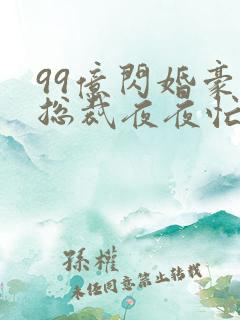 99億閃婚豪
總裁夜夜忙
孫權
未經同意禁止轉載